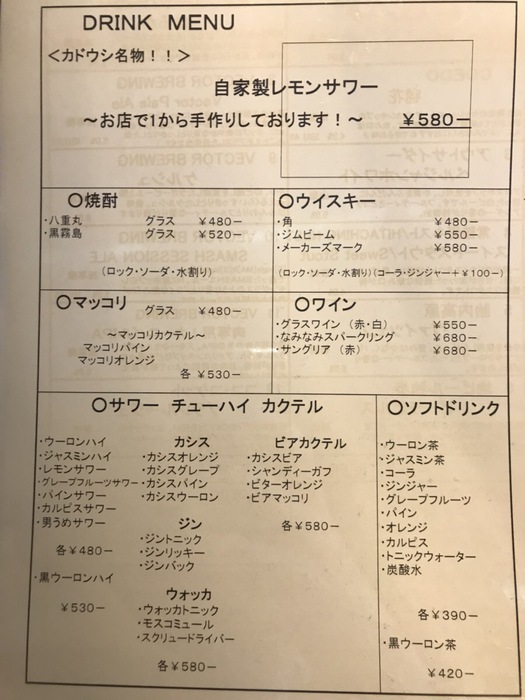 DRINK MENU
＜カドウシ名物！！＞
自家製レモンサワー
～お店で1から手作りしております！～ ￥580－
〇焼酎
・八重丸 グラス ￥480－
・黒霧島 グラス ￥520－
(ロック・ソーダ・水割り)
〇ウイスキー
・角 ￥480－
・ジムビーム ￥550－
・メーカーズマーク ￥580－
(ロック・ソーダ・水割り)(コーラ・ジンジャー＋￥100－)
〇マッコリ グラス ￥480－
～マッコリカクテル～
マッコリパイン
マッコリオレンジ
各 ￥530－
〇ワイン
・グラスワイン （赤・白） ￥550－
・なみなみスパークリング ￥680－
・サングリア （赤） ￥680－
〇サワー チューハイ カクテル
・ウーロンハイ
・ジャスミンハイ
・レモンサワー
・グレープフルーツサワー
・パインサワー
・カルピスサワー
・男うめサワー
各￥480－
・黒ウーロンハイ
￥530－
カシス
・カシスオレンジ
・カシスグレープ
・カシスパイン
・カシスウーロン
ジン
・ジントニック
・ジンリッキー
・ジンバック
ウォッカ
・ウォッカトニック
・モスコミュール
・スクリュードライバー
各￥580－
ビアカクテル
・カシスビア
・シャンディーガフ
・ビターオレンジ
・ビアマッコリ
各￥580－
〇ソフトドリンク
・ウーロン茶
・ジャスミン茶
・コーラ
・ジンジャー
・グレープフルーツ
・パイン
・オレンジ
・カルピス
・トニックウォーター
・炭酸水
各￥390－
・黒ウーロン茶
￥420－